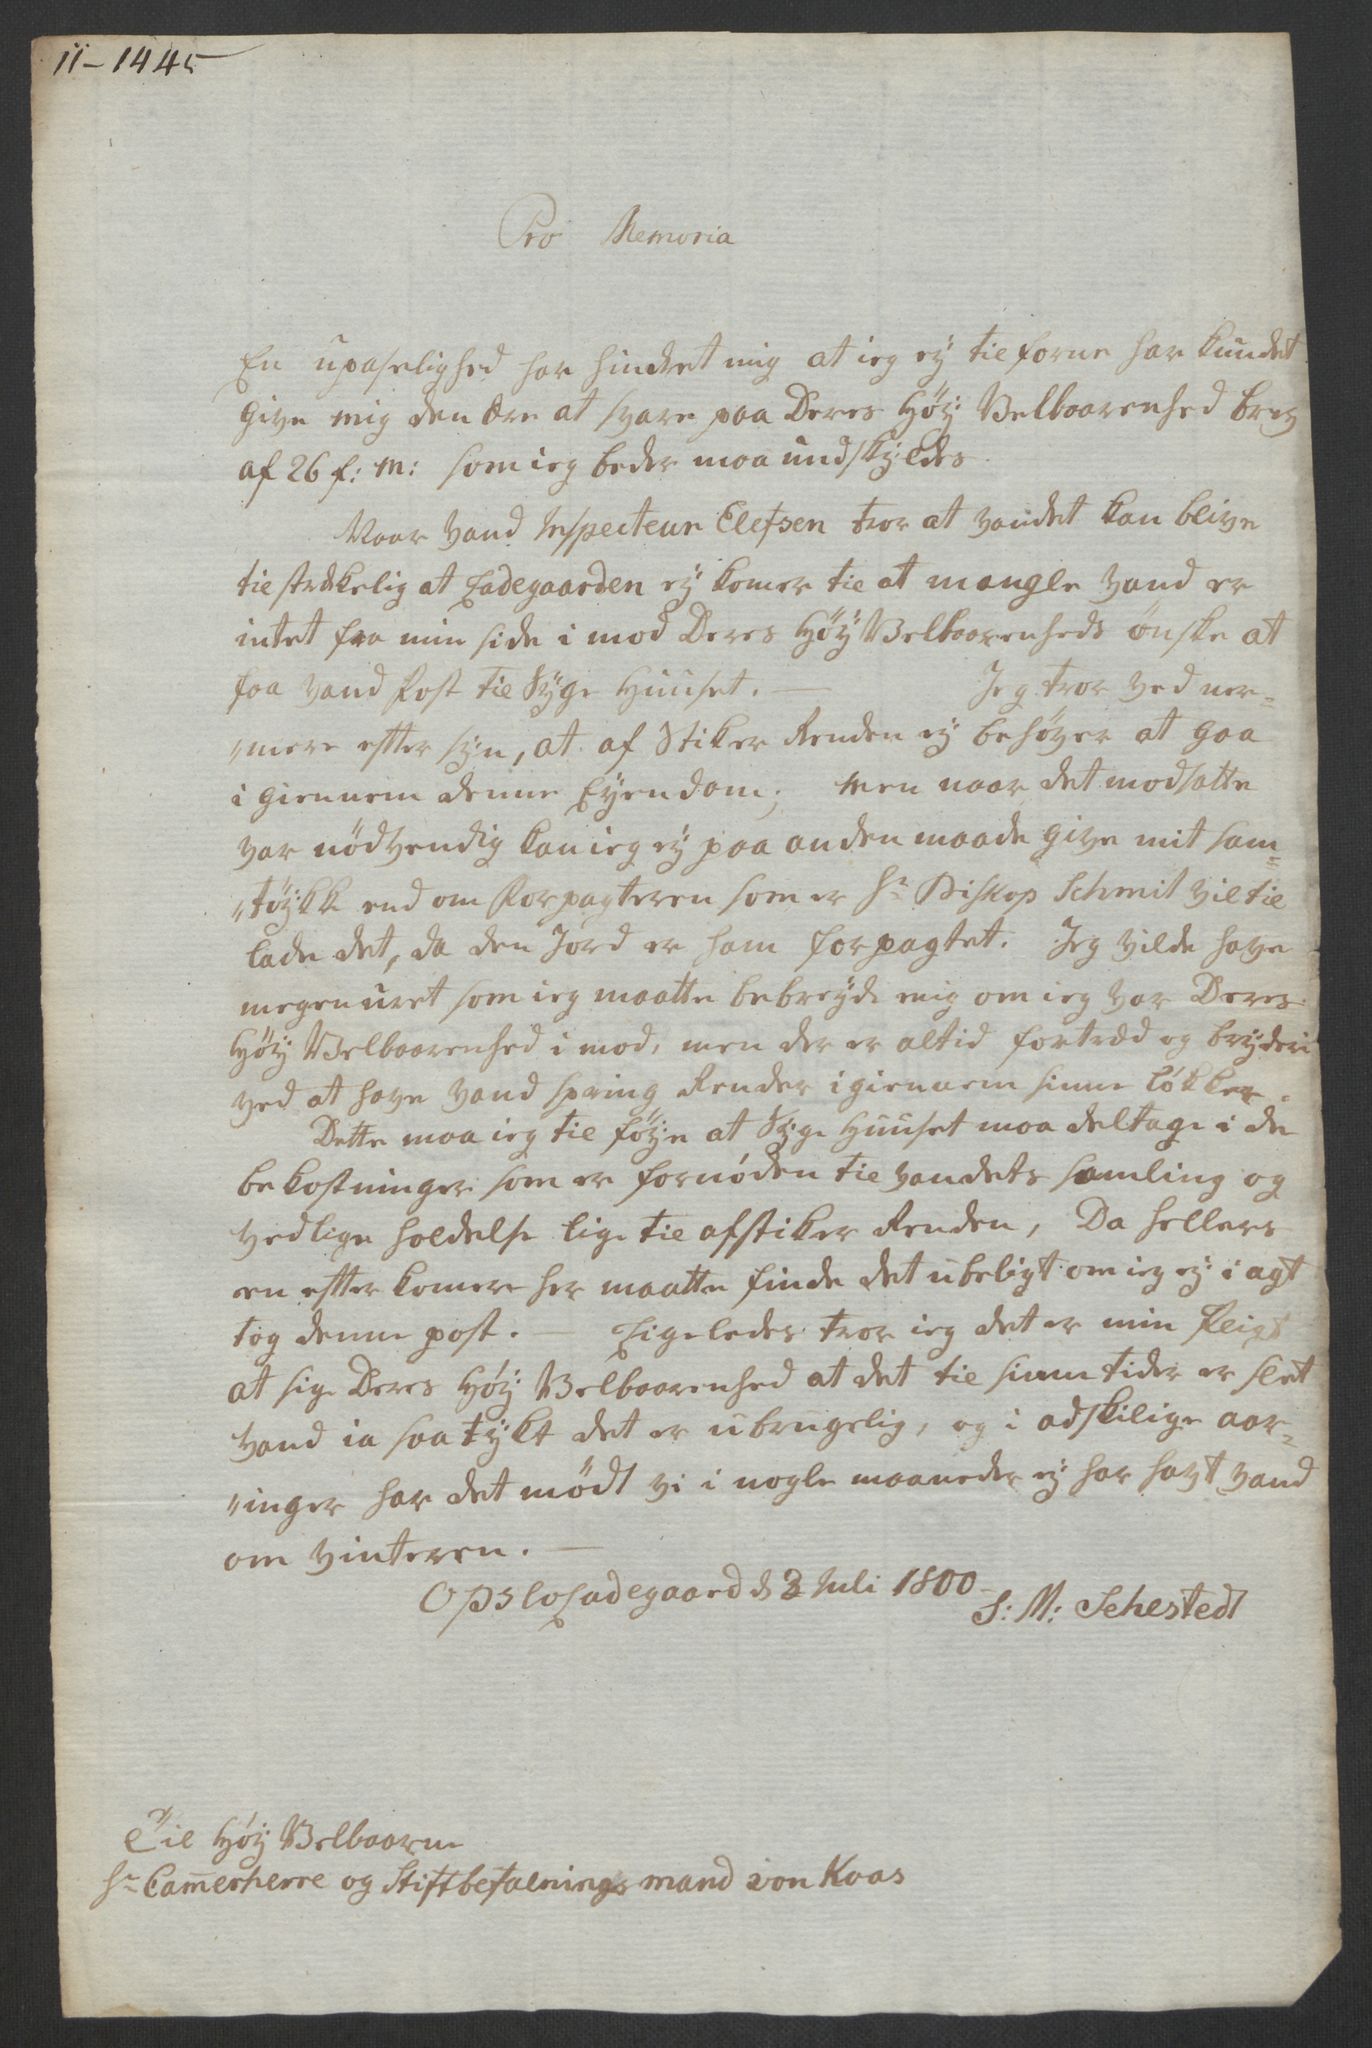 11-1445
Pro Memoria
En upaselighed har hindret mig at ieg ey tilforne har kundet
give mig den Ære at svare paa Deres Høÿ Velbaarenhed brev
af 26 f: M: som ieg beder maa undskÿldes
Naar Vand Inspecteur Elefsen tror at vandet kan blive
tilstrækelig at Ladegaarden eÿ komer til at mangle vand er
intet fra min side i mod Deres Høÿ Velbaarenheds ønske at
faa vand Post til Sÿge Huuset. — Jeg tror ved ner=
"mere efter sÿn, at af Stiker Renden eÿ behøver at gaa
i giennem denne Eÿendom; Men naar det modsatte
var nödvendig kan ieg eÿ paa anden maade give mit sam=
"tÿkke end om Forpagteren som er Hr Biskop Schmit vil til
lade det, da den Jord er ham forpagtet. Jeg vilde have
megen uret som ieg maatte bebreÿde mig om ieg var Deres
Høÿ Velbaarenhed i mod, men der er altid fortræd og brÿderi
ved at have vand spring Render igiennem sinne løkker.
Dette maa ieg til föÿe at Sÿge Huuset maa deltage i de
bekostninger som er fornøden til vandets samling og
vedlige holdelse lige til afstiker Renden, Da hellers
en efter komere her maatte finde det ubeligt om ieg eÿ i agt
tog denne post. — Ligeledes tror ieg det er min Pligt
at sige Deres Høÿ Velbaarenhed at det til sinne tider er slet
vand ia saa tÿkt det er ubrugelig, og i adskilige aar=
"inger har det mödt vi i nogle maaneder eÿ har havt vand
om vinteren. —
Opslo Ladegaard d 3 Juli 1800
S: M: Sehestedt
Til Høÿ Velbaarne
Hr Camerherre og Stiftbefalnings mand von Kaas